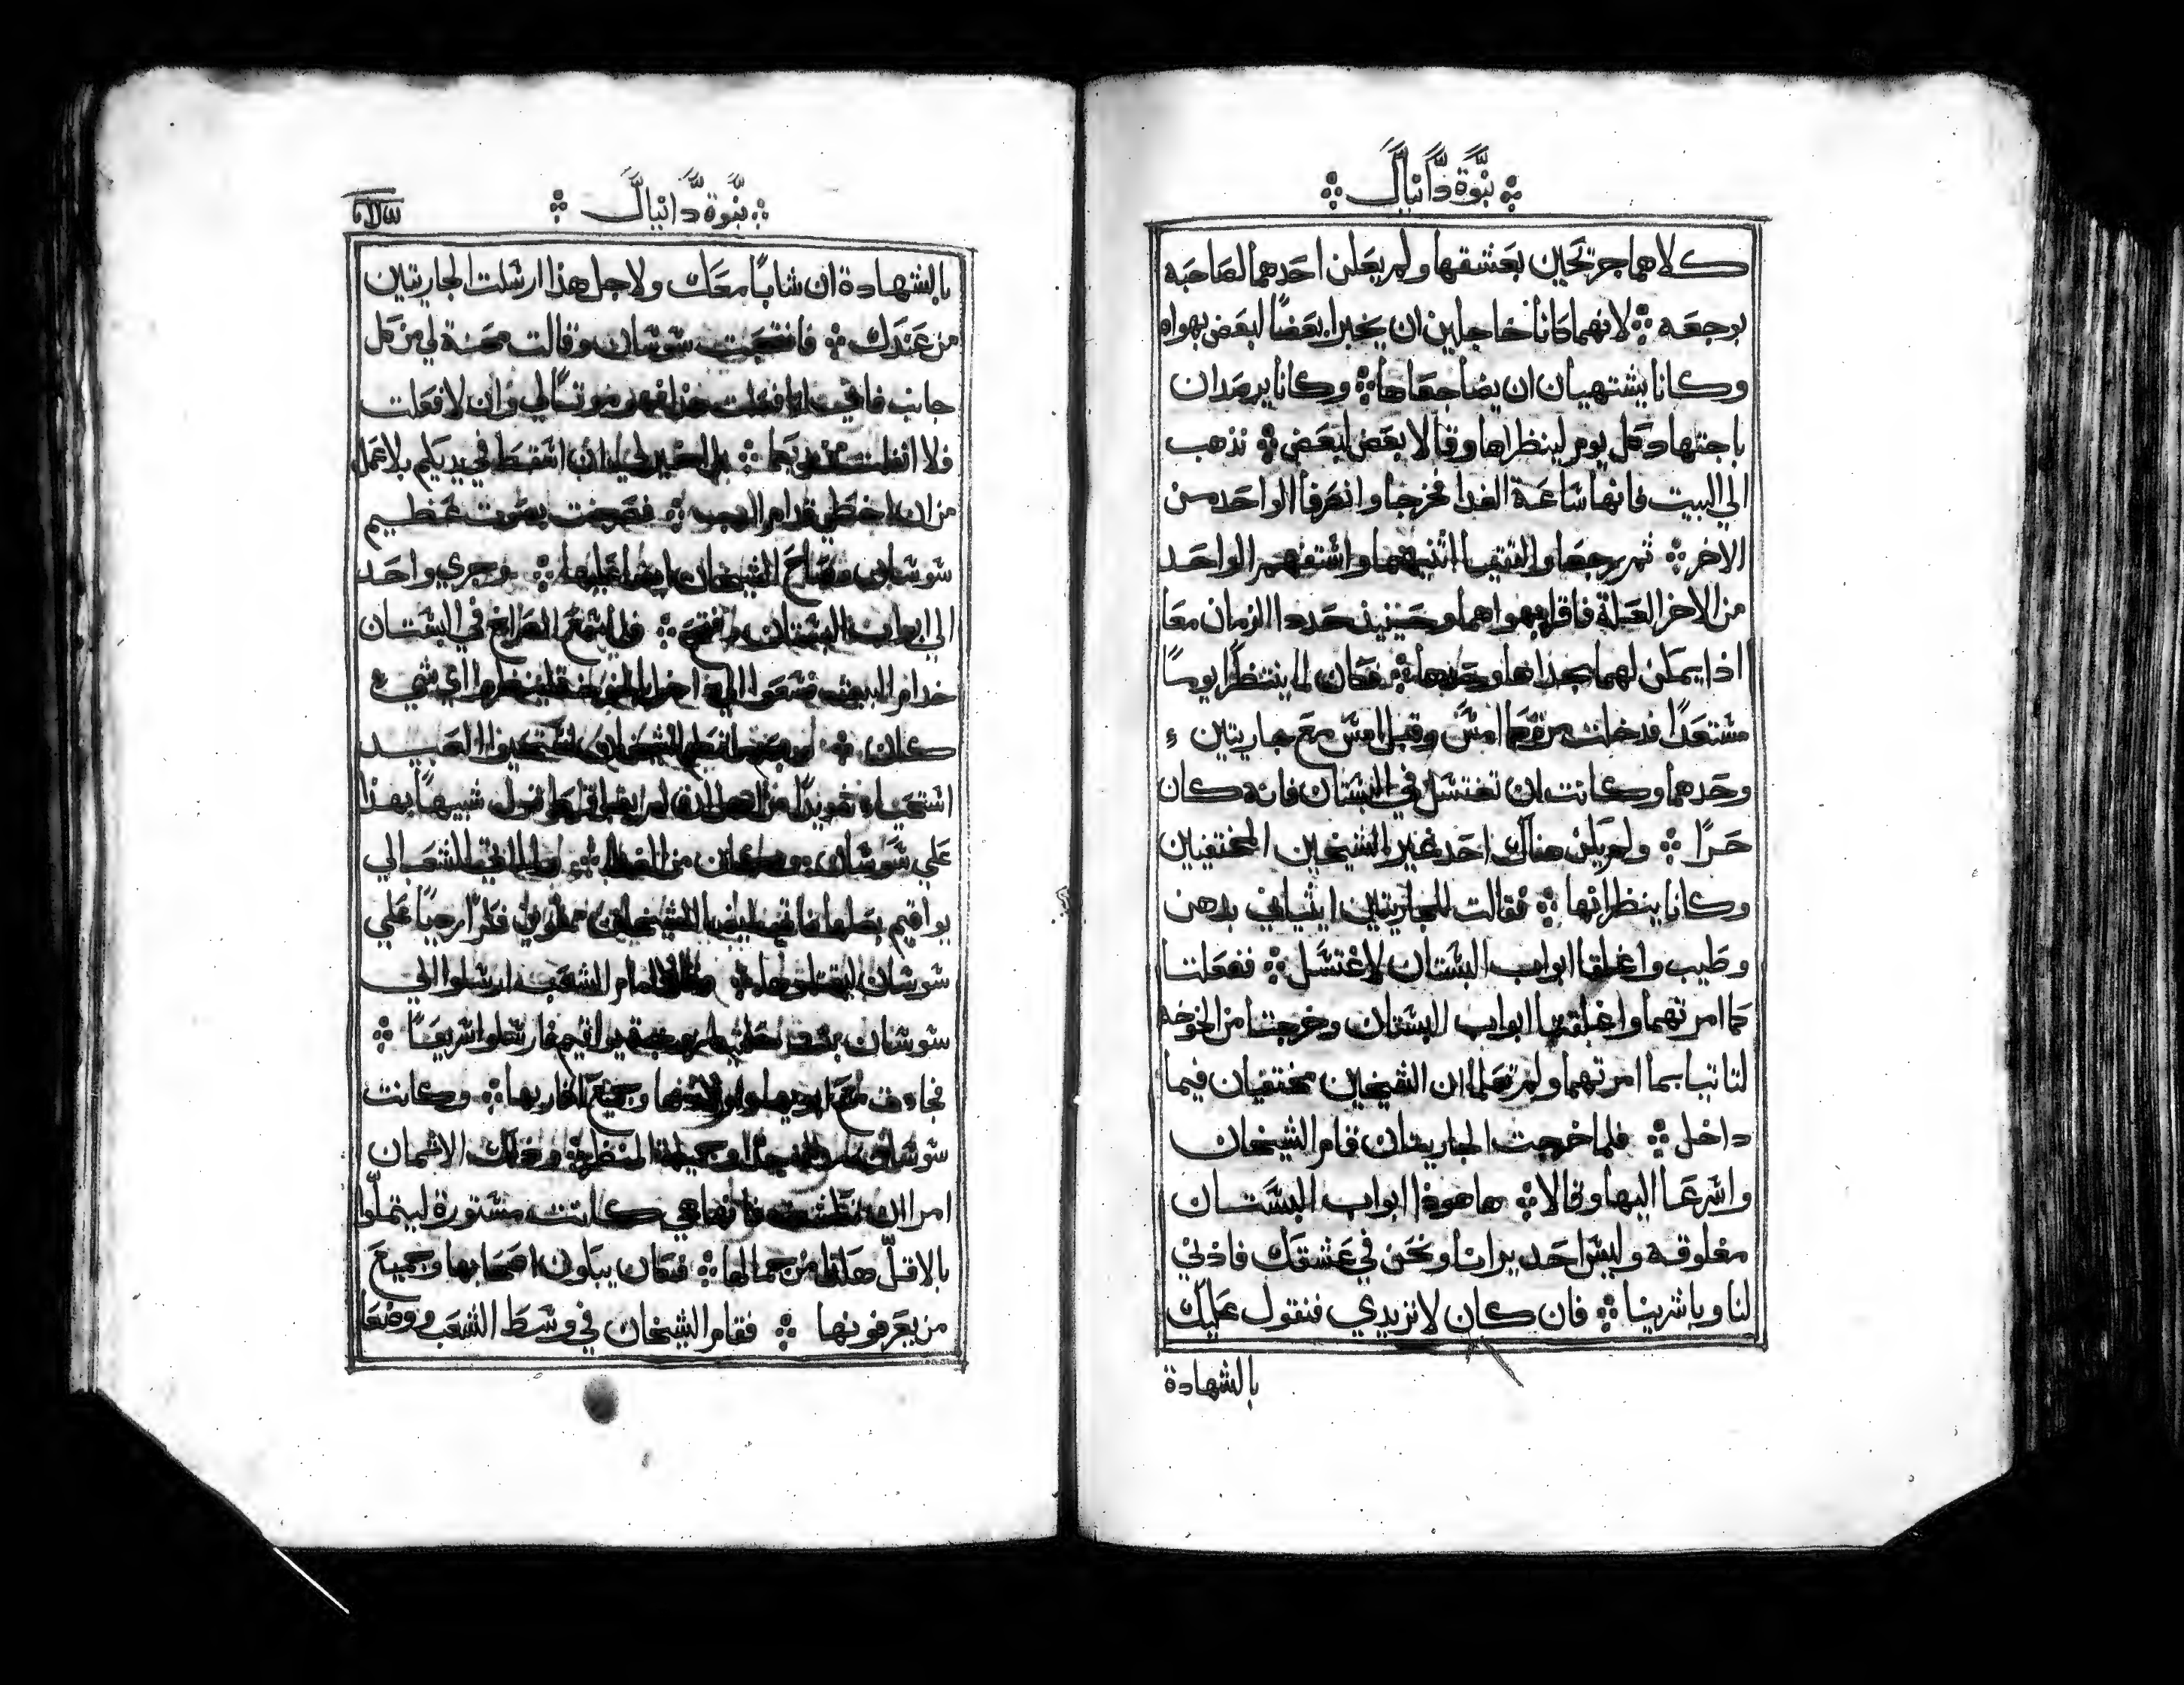 نبوة دانيال
كلاهما جرتحين بعشقها ولم يعلن احدهما لصاحبه
بوجعه لانهما كانا خاجلين ان يخبرا بعضا لبعض بهواه
وكانا يشتهيان ان يضاجعاها وكانا يرصدان
باجتهاد كل يوم لينظراها وقالا بعض لبعض نذهب
الي البيت فانها ساعة الغدا فخرجا وانصرفا الواحد من
الاخر ثم رجعا والتقيا اثنيهما واستفهم الواحد
من الاخر العلة فاقرا بهواهما وحينيذ حددا الزمان معا
اذا يمكن لهما يجداها وحدها فكان لما ينتظرا يوما
مستعدا فدخلت مرة كما امس وقبل امس مع جاريتين
وحدهما وكانت ان تغتسل في البستان فانه كان
حرا ولم يكن هناك احد غير الشيخين المختفيين
وكانا ينظرانها فقالت للجاريتين ايتياني بدهن
وطيب واغلقا ابواب البستان لاغتسل ففعلتا
كما امرتهما واغلقتا ابواب البستان وخرجتا من الخوخه
لتاتيا بما امرتهما ولم تعلما ان الشيخين مختفيان فيما
داخل فلما خرجت الجاريتان قام الشيخان
واسرعا اليها وقالا هاهوذا ابواب البستان
مغلوقه وليس احد يرانا ونحن في عشقك فاذني
لنا وباشرينا فان كان لا تريدي فنقول عليك
بالشهادة
نبوة دانيال
بالشهادة ان شابا معك ولاجل هذا ارسلت الجاريتين
من عندك فانتحبت سوسان وقالت محنة لي من كل
جانب فاني ان فعلت هذا فهو موتا لي وان لا فعلت
فلا انفلت من يديكما بل الخير لي ان اسقط في يديكم بلا عمل
من ان اخطي قدام الرب فصرخت بصوت عظيم
سوسان وصاح الشيخان ايضا عليها وجري واحد
الي ابواب البستان وفتح فلما سمع الصراخ في البستان
خدام البيت سعوا الي داخل لينظروا اي شي
كان الشيخان استحيوا العبيد
استحياء شديدا من اجل ان لم يقال قط قول شبيها بهذا
علي سوسان وكان من الغد ولما اتي الشعب الي
يواقيم بعلها فاتي ايضا الشيخان مملوين فكرا رديا علي
سوسان ليقتلوها وقالا امام الشعب ارسلوا الي
سوسان بنت حلقيا زوجة يواقيم فارسلوا سريعا
فجات مع ابويها واولادها وجميع اقاربها وكانت
سوسان جدا وجميلة المنظر وذلك الاثمان
امرا ان تكشف فانها هي كانت مستورة ليتملوا
بالاقل هكذا من جمالها فكان يبكون اصحابها وجميع
من يعرفونها فقام الشيخان في وسط الشعب ووضعا